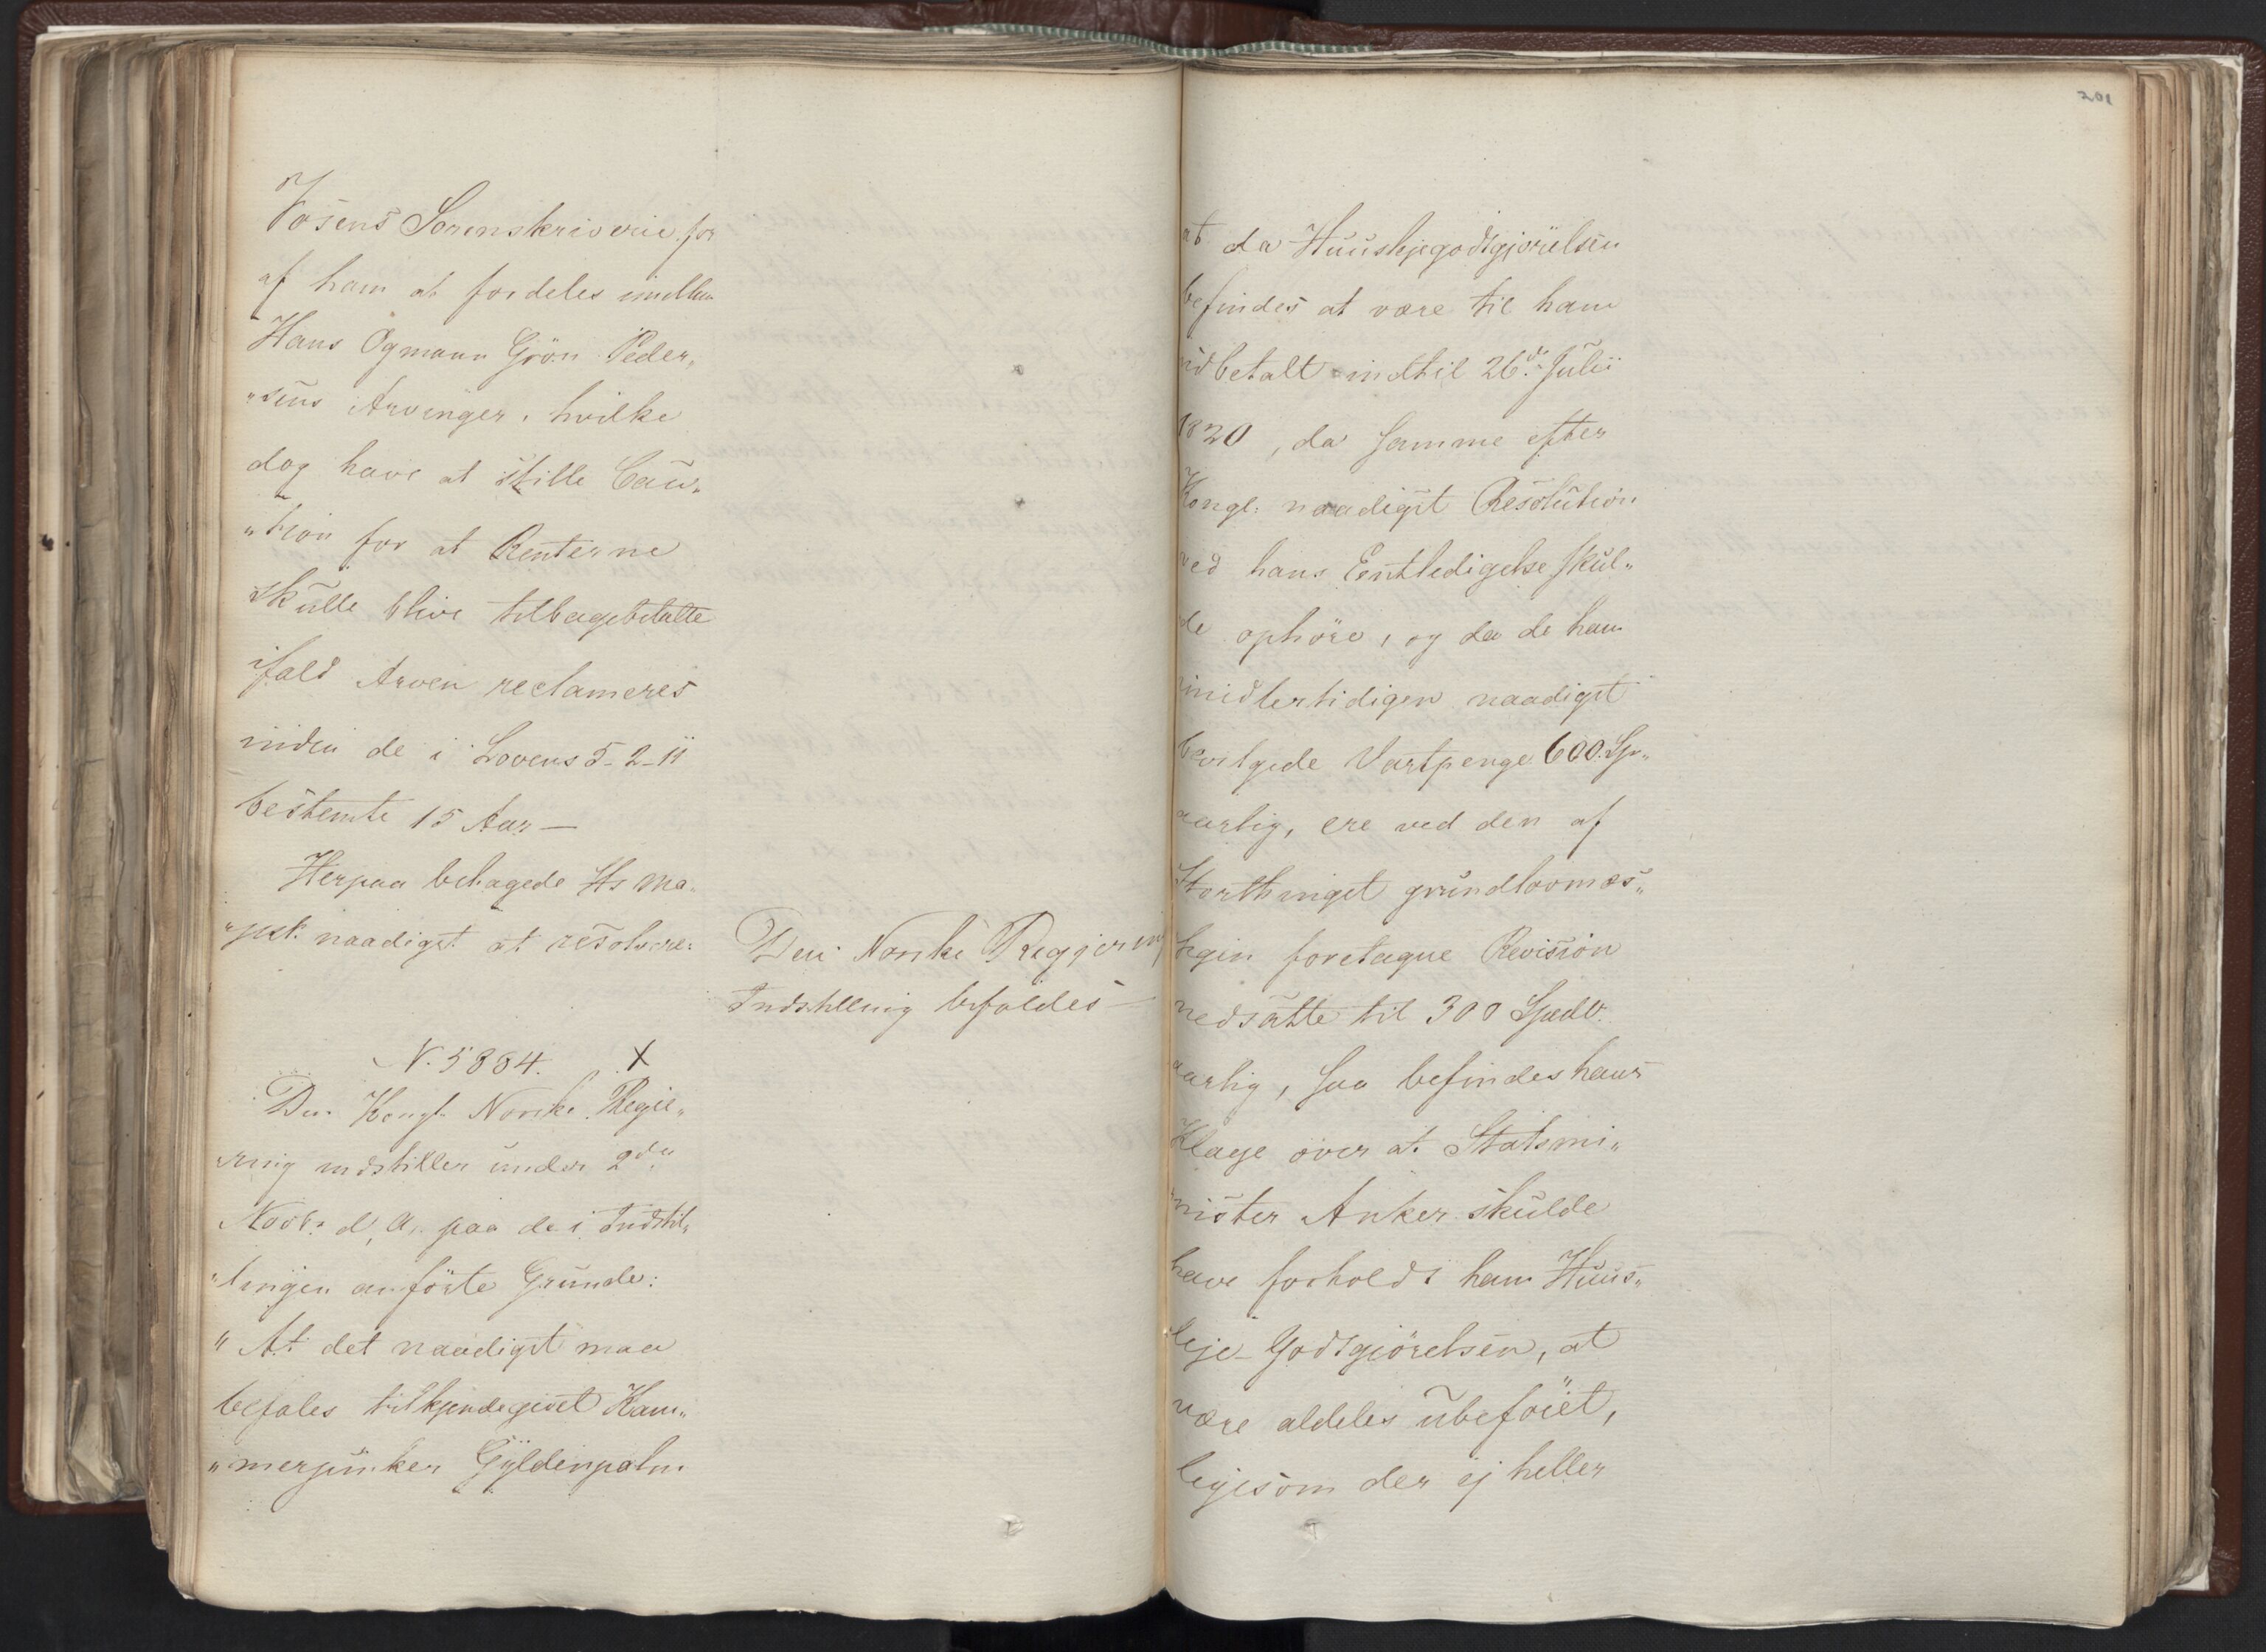 Vosens Sorenskriverie for
af ham at fordeles imellem
Hans Ogmann Grön Peder„
„sens Arvinger, hvilke
dog have at stille Cau„
„tion for at Renterne
skulle blive tilbagebetalte
ifald Arven reclameres
inden de i Lovens 5-2-11
bestemte 15 Aar —
Herpaa behagede Hs Ma„
„jest. naadigst at resolvere:
Den Norske Regjerings
Indstilling bifaldes —
N. 5834. X
Den Kongl. Norske Regie„
ring indstiller under 2den
Novbr. d. A. paa de i Indstil„
„lingen anförte Grunde:
„At det naadigst maa
befales tilkjendegivet Kam„
„merjunker Gyldenpalm
201
at da Huuslejegodtgjörelsen
befindes at være til ham
udbetalt indtil 26de Julii
1820, da samme efter
Kongl. naadigst Resolution
ved hans Entledigelse skul„
de ophöre, og da de ham
imidlertidigen naadigst
bevilgede Vartpenge 600 Sp„
aarlig, ere ved den af
Storthinget grundlovmæs„
sigen foretagne Revision
nedsatte til 300 Spedlr.
aarlig, saa befindes hans
Klage over at Statsmi„
nister Anker skulde
have forholdt ham Huus„
leje-Godtgiörelsen, at
være aldeles ubeföiet,
ligesom der ej heller